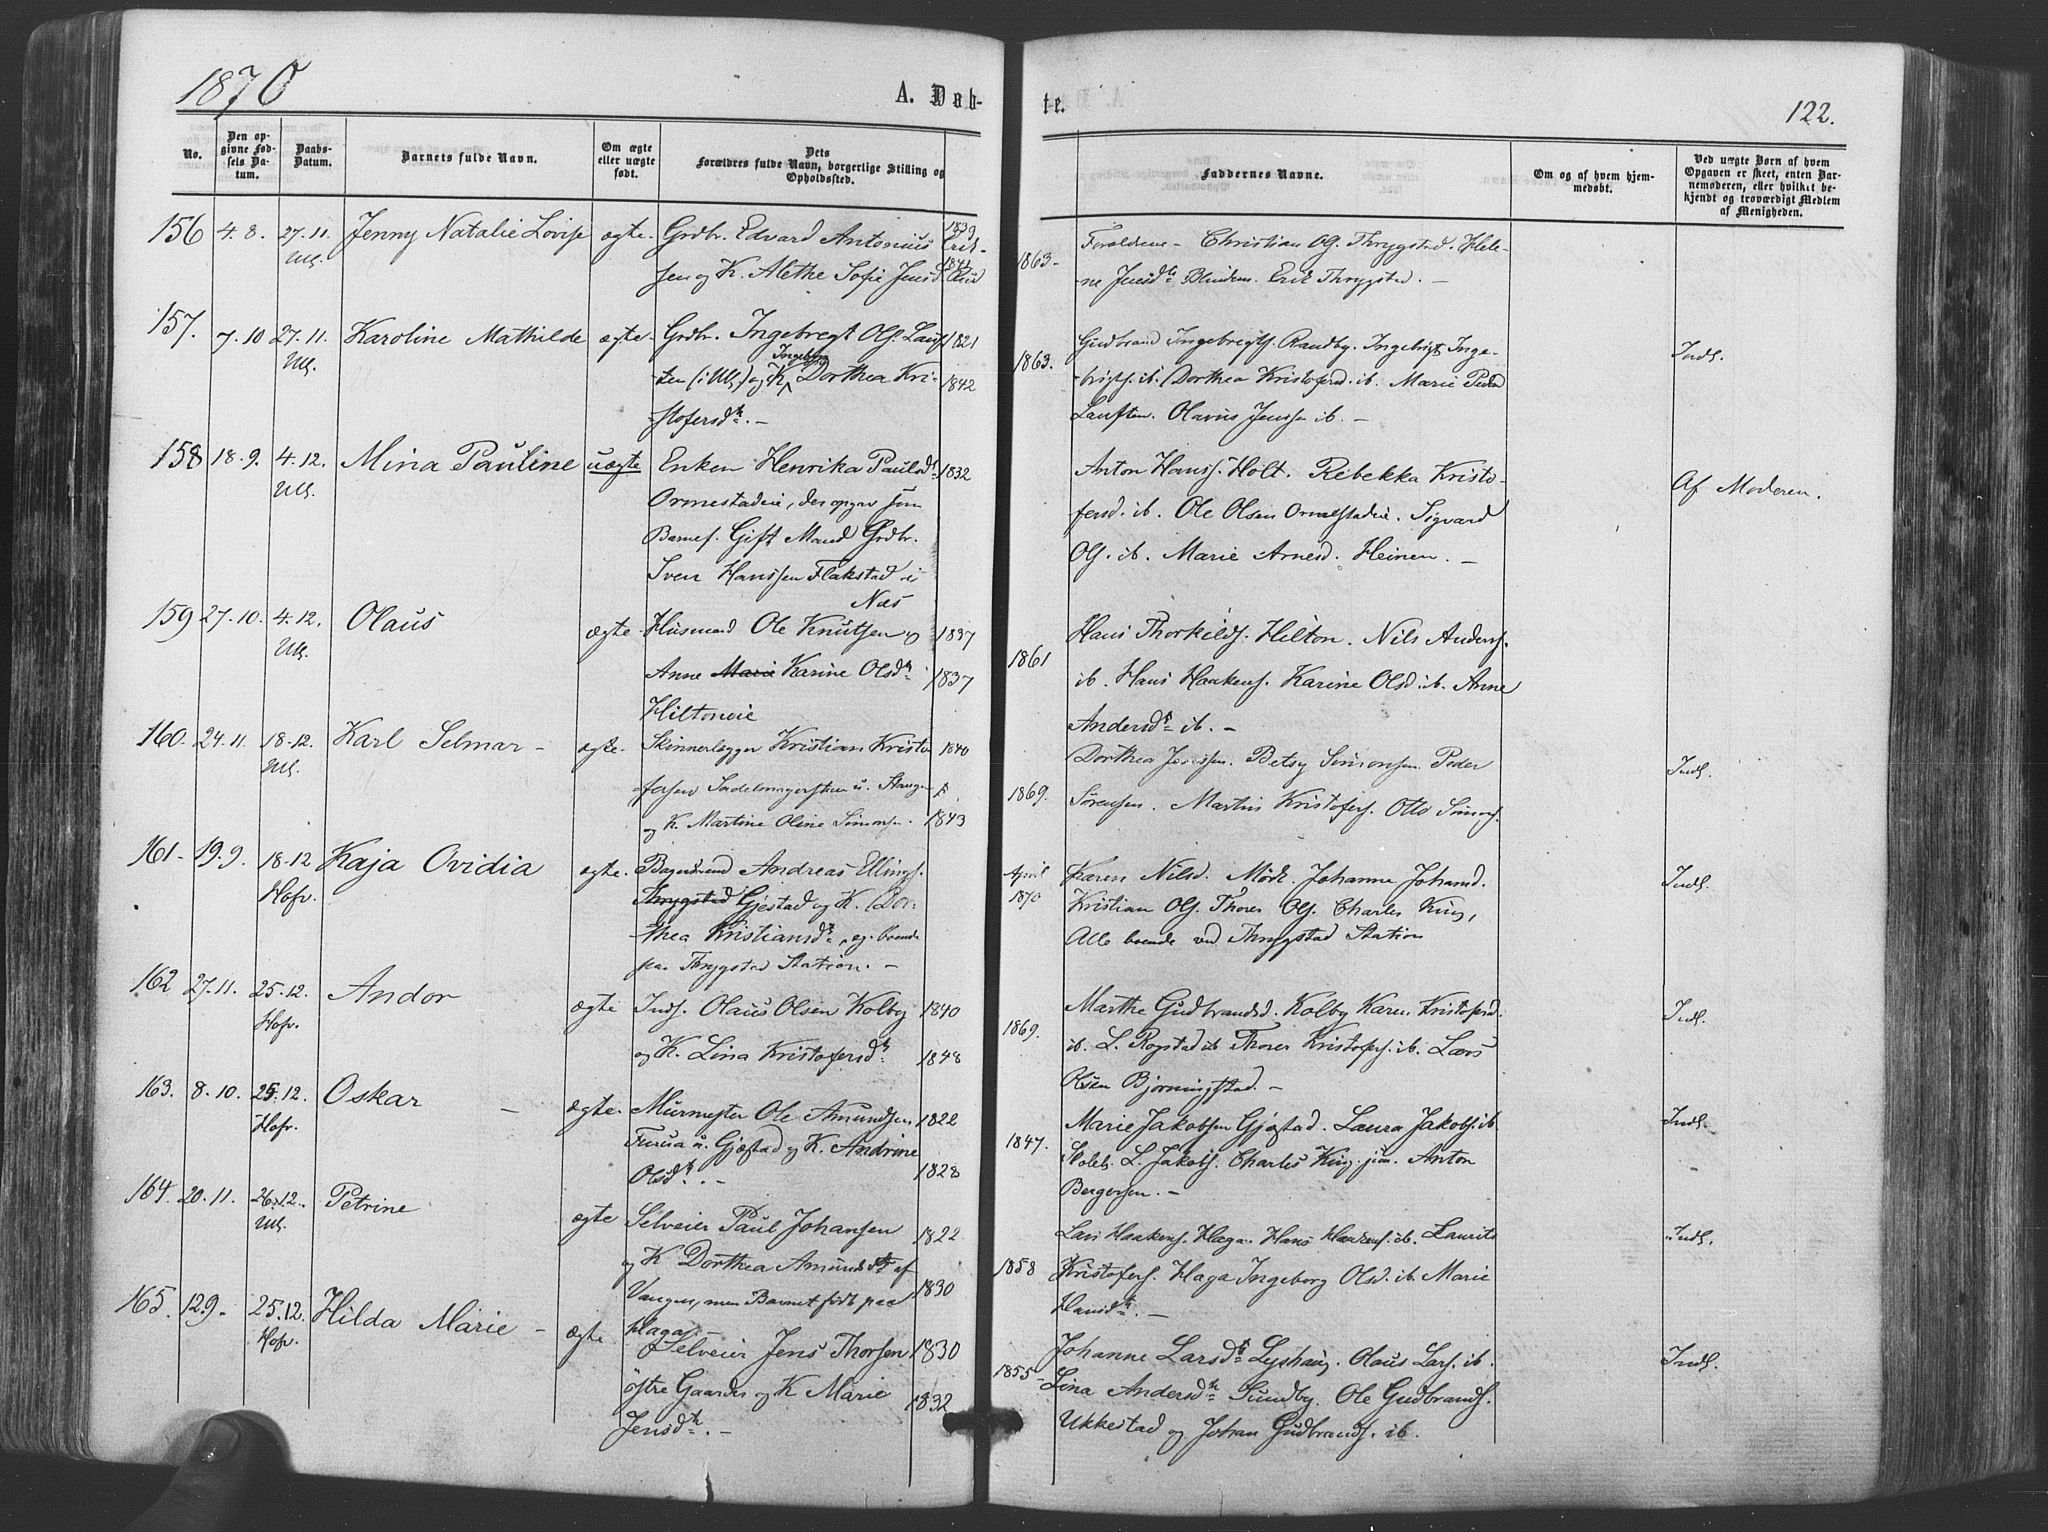 1870
A. Døb-
te.
122.
No.
Den op-
givne Fød-
sels Da-
tum.
Daabs-
Datum.
Barnets fulde Navn.
Om ægte
eller uægte
født.
Dets
Forældres fulde Navn, borgerlige Stilling og
Opholdssted.
Faddernes Navne.
Om og af hvem hjem-
medøbt.
Ved uægte Børn af hvem
Opgaven er skeet, enten Bar-
nemoderen, eller hvilket be-
kjendt og troværdigt Medlem
af Menigheden.
156 4.8. 27.11. Ull. Jenny Natalie Lovise ægte.
Grdbr. Edvard Antonius Erik- 1839
sen og K. Alethe Sofie Jensd. 1841
1863-
Forældrene - Christian Ol. Thrygstad. Hele-
ne Jensdtr Blindem. Erik Thrygstad. -
157. 7.10 27.11. Ull. Karoline Mathilde ægte.
Grdbr. Ingebregt Ols. Lauf- 1821
ten (i Ull.) og K. Ingeborg Dorthea Kri- 1842
stofersdtr. -
1863.
Gudbrand Ingebregts. Randby. Ingebrigt Inge-
brigts. ib. Dorthea Kristofersd. ib. Marie Peders
Lauften. Olavus Jenssen ib. -
Indl.
158 18.9. 4.12. Ull. Mina Pauline uægte
Enken Henrika Paulsdtr 1832
Ormestadeie, der opgav som
Barnef. Gift Mand Grdbr.
Sven Hanssen Flakstad i
Næs
Anton Hanss. Holt. Rebekka Kristo-
fersd. ib. Ole Olsen Ormestadeie. Sigvard
Ols. ib. Marie Arnesd. Heinen. -
Af Moderen.
159 27.10. 4.12. Ull. Olaus ægte.
Husmand Ole Knutsen og 1837
Anne Marie Karine Olsdtr 1837
Hiltoneie
1861
Hans Thorkilds. Hilton. Nils Anders.
ib. Hans Haakens. Karine Olsd. ib. Anne
Andersdtr ib. -
160. 24.11. 18.12. Ull. Karl Selmar - ægte.
Skinnerlægger Kristian Kristo 1840
fersen Sadelmagerstuen u. Stange
og K. Martine Oline Simons. 1843
1869.
Dorthea Jenssen. Betsy Simonsen. Peder
Sørensen. Martin Kristofers. Otto Simons.
Indl.
161- 19.9. 18.12 Hofv. Kaja Ovidia ægte.
Andreas Ellings.
Thrygstad Gjestad og K. Dor-
thea Kristiansdtr, eg. boende
paa Thrygstad Station. -
April
1870
Karen Nilsd. Mørk. Johanne Johansd.
Kristian Ols. Thorer Ols. Charles King,
Alle boende ved Thrygstad Station
Indl.
162 27.11. 25.12. Hofv. Andor ægte
Inds. Olaus Olsen Kolby 1840
og K. Lina Kristofersdtr 1848
1869.
Marthe Gudbrandsd. Kolby Karen Kristofersd.
ib. L. Rogstad ib Thorer Kristofers. ib. Lars
Olsen Bjørningstad. -
Indl.
163. 8.10. 25.12. Hofv. Oskar - ægte.
Murmester Ole Amundsen 1822
Furua u. Gjestad og K. Andrine
Olsdtr. - 1828
1847.
Marie Jakobsen Gjestad. Laura Jakobs. ib
Skolel. L. Jakobs. Charles King jun. Anton
Bergersen. -
Indl.
164. 20.11. 26.12. Ull. Petrine ægte
Selveier Paul Johansen 1822
og K Dorthea Amundsdtr af
Vangen, men Barnet født paa 1830
Haga. -
1858
Lars Haakens. Haga. Hans Haakens. ib. Laurits
Kristofers. Haga Ingeborg Olsd. ib. Marie
Hansdtr. -
Indl.
165. 12.9. 25.12. Hofv. Hilda Marie - ægte.
Selveier Jens Thorsen 1830
østre Gaarder og K Marie 1832
Jensdtr. -
1855-
Johanne Larsdtr Lyshaug. Olaus Lars. ib.
Lina Andersdtr Sundby. Ole Gudbrands.
Ukkestad og Johan Gudbrands. ib.
Indl.